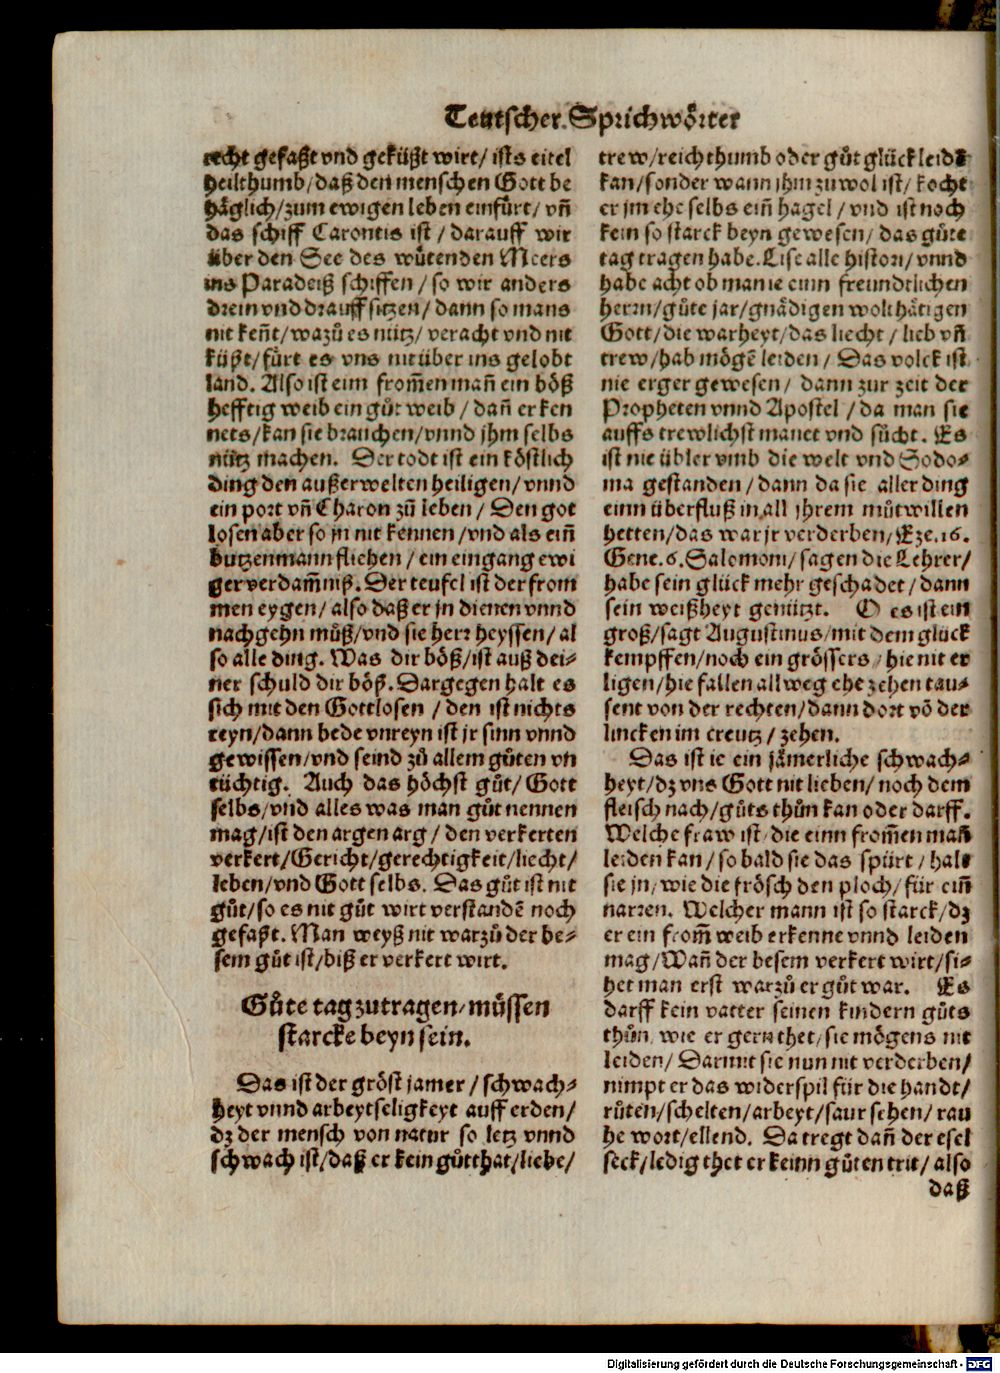 Teutscher Sprichwoͤrter
recht gefaßt vnd gekuͤßt wirt / ists eitel
heilthumb / daß den menschen Gott be
haͤglich / zum ewigen leben einfuͤrt / vñ
das schiff Carontis ist / darauff wir
uͤber den See des wuͤtenden Meers
ins Paradeiß schiffen / so wir anders
drein vnd drauff sitzen / dann so mans
nit keñt / wazuͦ es nuͤtz / veracht vnd nit
kuͤßt / fuͤrt es vns nit uͤber ins gelobt
land. Also ist eim from̄en mañ ein boͤß
hefftig weib ein guͦt weib / dañ er ken
nets / kan sie brauchen / vnnd jhm selbs
nuͤtz machen. Der todt ist ein koͤstlich
ding den außerwelten heiligen / vnnd
ein port vñ Charon zuͦ leben / Den got
losen aber so jn nit kennen / vnd als eiñ
butzenmann fliehen / ein eingang ewi
ger verdam̄niß. Der teufel ist der from
men eygen / also daß er jn dienen vnnd
nachgehn muͦß / vnd sie herr heyssen / al
so alle ding. Was dir boͤß / ist auß dei⸗
ner schuld dir boͤß. Dargegen halt es
sich mit den Gottlosen / den ist nichts
reyn / dann bede vnreyn ist jr sinn vnnd
gewissen / vnd seind zuͦ allem guͦten vn
tuͤchtig. Auch das hoͤchst guͦt / Gott
selbs / vnd alles was man guͦt nennen
mag / ist den argen arg / den verkerten
verkert / Gericht / gerechtigkeit / liecht /
leben / vnd Gott selbs. Das guͦt ist nit
guͦt / so es nit guͦt wirt verstandē noch
gefaßt. Man weyß nit warzuͦ der be⸗
sem guͦt ist / biß er verkert wirt.
Guͦte tag zutragen / muͤssen
starcke beyn sein.
Das ist der groͤst jamer / schwach⸗
heyt vnnd arbeytseligkeyt auff erden /
dz der mensch von natur so letz vnnd
schwach ist / daß er kein guͦtthat / liebe /
trew / reichthumb oder guͦt gluͤck leidē
kan / sonder wann jhm zu wol ist / kocht
er jm ehe selbs eiñ hagel / vnd ist noch
kein so starck beyn gewesen / das guͦte
tag tragen habe. Lise alle histori / vnnd
habe acht ob man ie einn freundtlichen
herrn / guͦte jar / gnaͤdigen wolthaͤtigen
Gott / die warheyt / das liecht / lieb vñ
trew / hab moͤgē leiden / Das volck ist
nie erger gewesen / dann zur zeit der
Propheten vnnd Apostel / da man sie
auffs trewlichst manet vnd suͦcht. Es
ist nie uͤbler vmb die welt vnd Sodo⸗
ma gestanden / dann da sie aller ding
einn uͤberfluß in all jhrem muͦtwillen
hetten / das war jr verderben / Eze. 16.
Gene. 6. Salomoni / sagen die Lehrer /
habe sein gluͤck mehr geschadet / dann
sein weißheyt genuͤtzt. O es ist ein
groß / sagt Augustinus / mit dem gluͤck
kempffen / noch ein groͤssers / hie nit er
ligen / hie fallen allweg ehe zehen tau⸗
sent von der rechten / dann dort vō der
lincken im creutz / zehen.
Das ist ie ein jaͤmerliche schwach⸗
heyt / dz vns Gott nit lieben / noch dem
fleisch nach / guͦts thuͦn kan oder darff.
Welche fraw ist / die einn from̄en mañ
leiden kan / so bald sie das spuͤrt / halt
sie jn / wie die froͤsch den ploch / fuͤr eiñ
narren. Welcher mann ist so starck / dz
er ein from̄ weib erkenne vnnd leiden
mag / Wañ der besem verkert wirt / si⸗
het man erst warzuͦ er guͦt war. Es
darff kein vatter seinen kindern guͦts
thuͦn / wie er gern thet / sie moͤgens nit
leiden / Darmit sie nun nit verderben /
nimpt er das widerspil fuͤr die handt /
ruͦten / schelten / arbeyt / saur sehen / rau
he wort / ellend. Da tregt dañ der esel
seck / ledig thet er keinn guͦten trit / also
daß
Digitalisierung gefördert durch die Deutsche Forschungsgemeinschaft - DFG